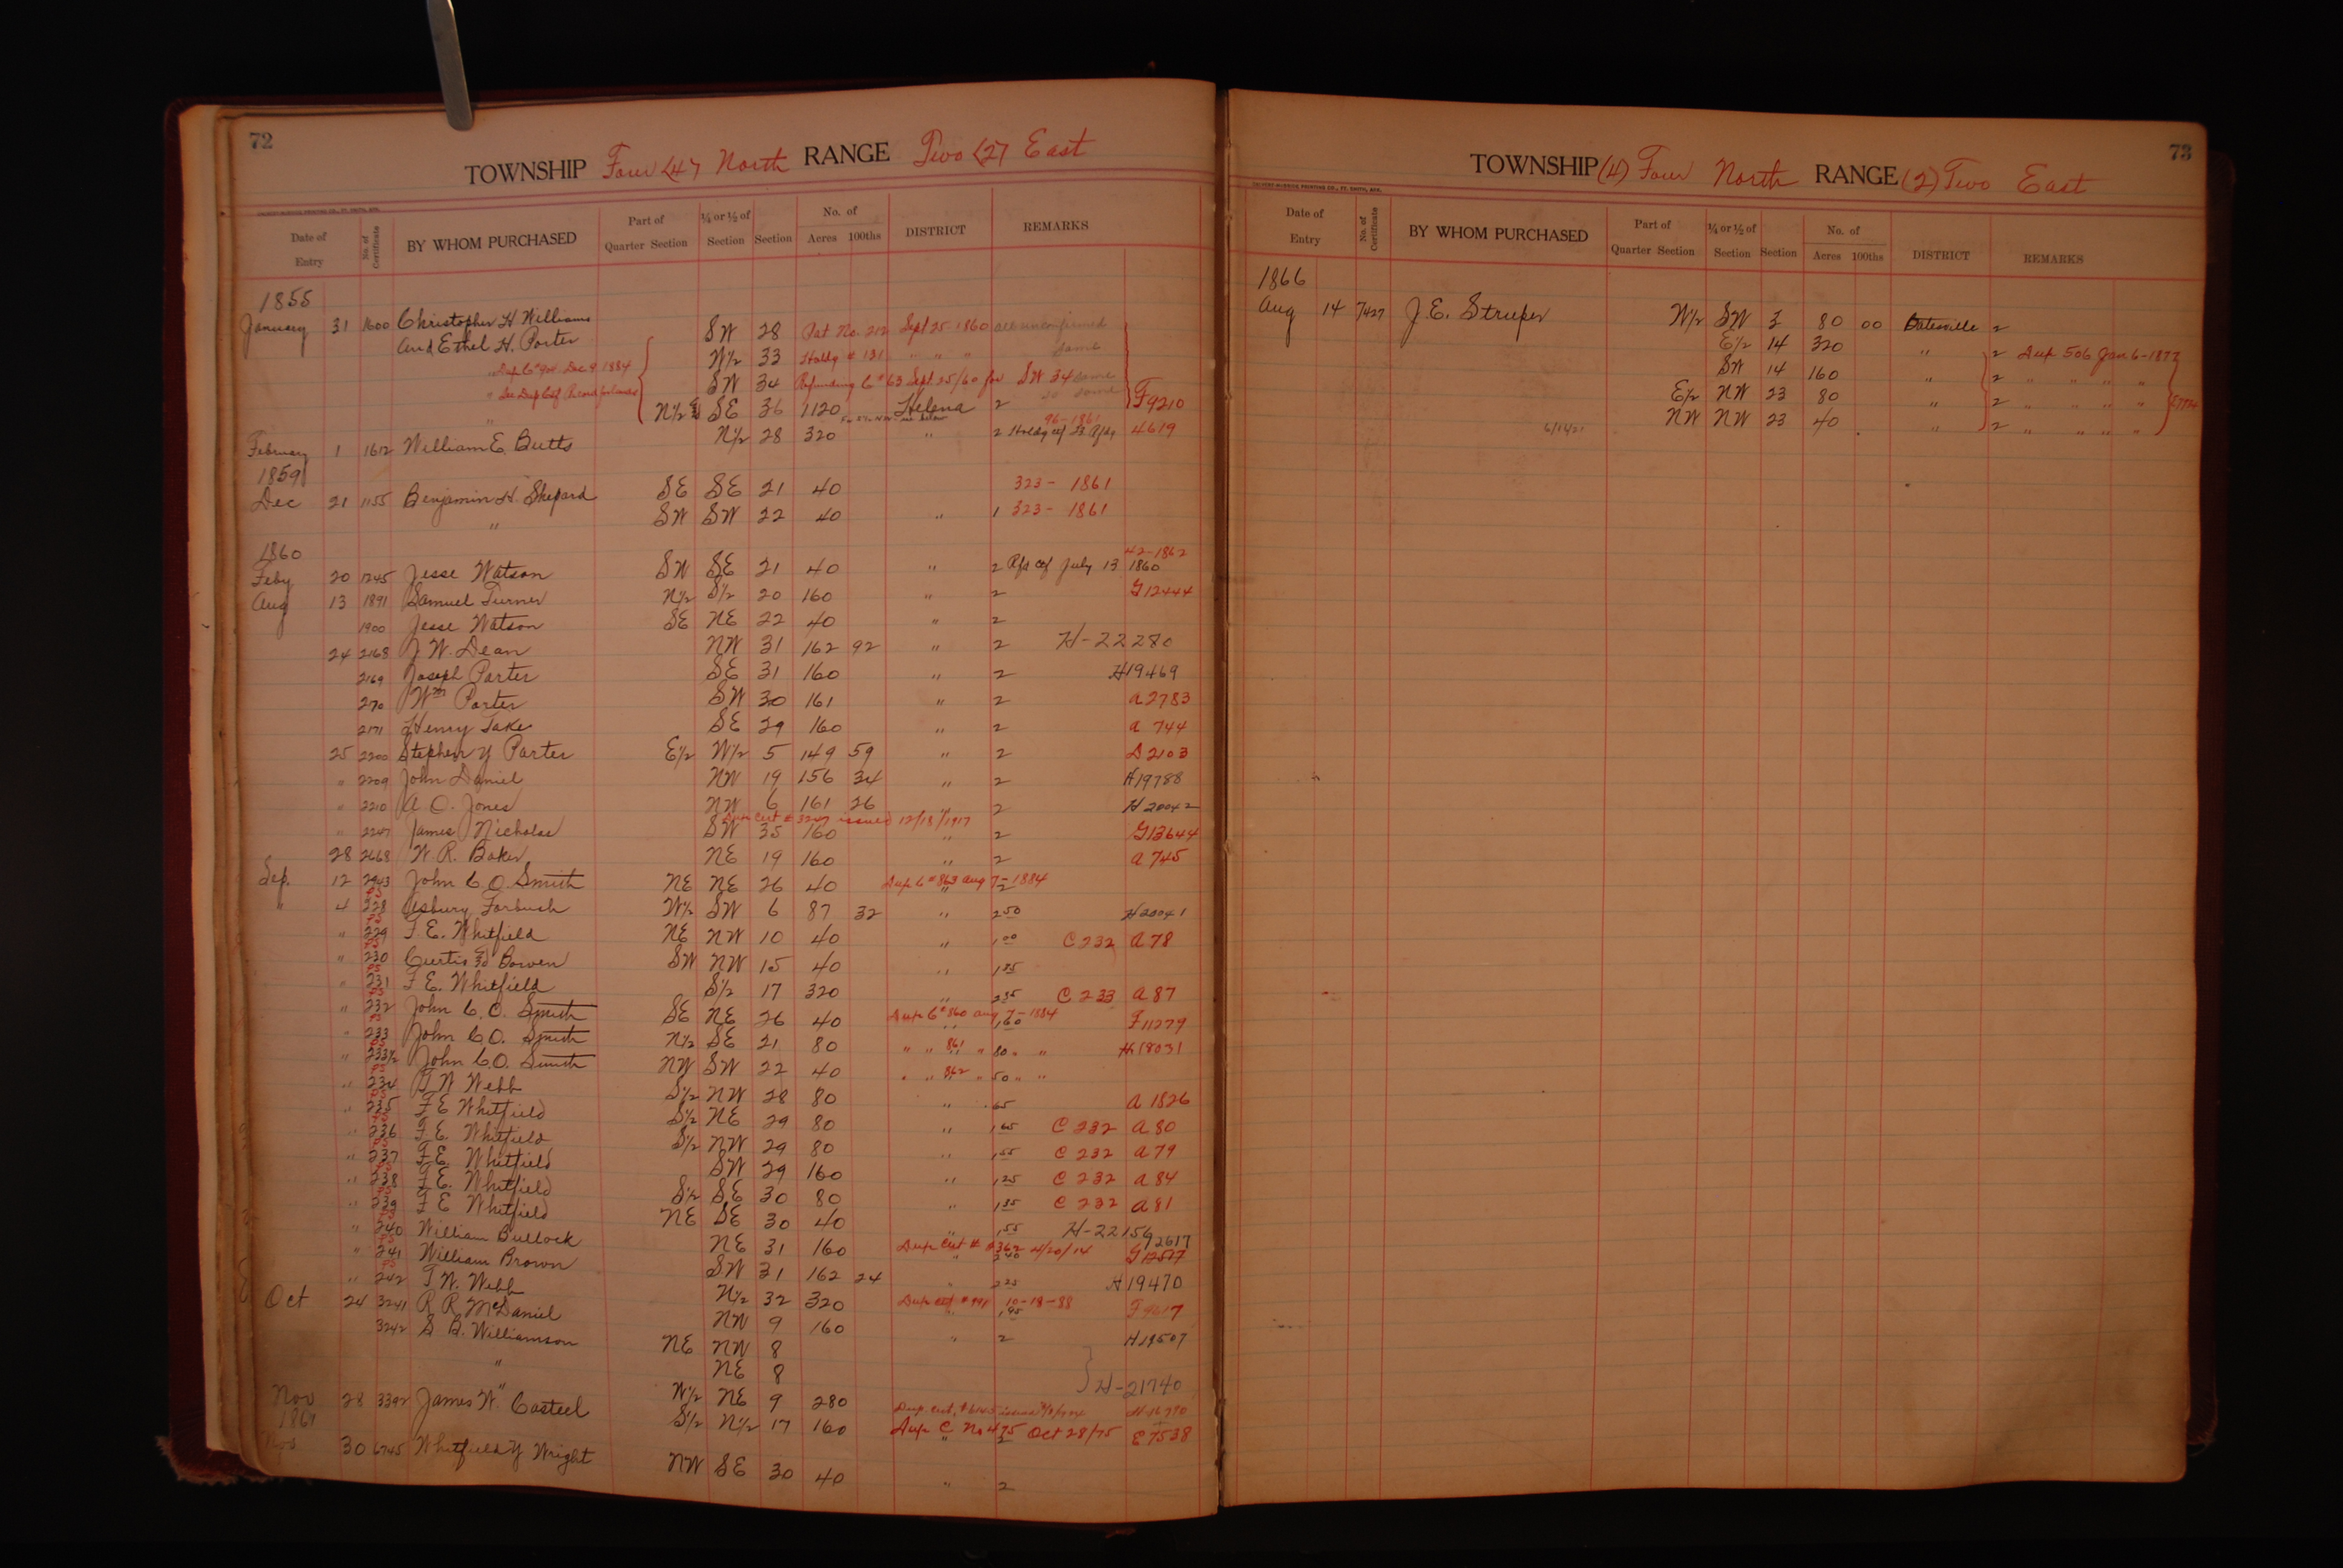 72
TOWNSHIP Four (4) North RANGE Two (2) East
Date of Entry No. of Certificate BY WHOM PURCHASED Part of Quarter Section ¼ or ½ of Section Section No. of Acres 100ths DISTRICT REMARKS
1855
January 31 1600 Christopher H Williams
and Ethel H. Porter SW 28 Pat No. 212 Sept 25 1860
Dup C # 904 Dec 9 1884 W½ 33 " " " same
SW 34 Refunding C # 63 Sept 25/60 for SW 34 same
" N½ & SE 36 1120 Helena 2 F9210
96-1861
February 1 1612 William E. Butts N½ 28 320 " 2 4619
1859
Dec 21 1155 Benjamin H. Shepard SE SE 21 40 323 - 1861
" SW SW 22 40 " 1 323 - 1861
1860 42-1862
Feby 20 1245 Jesse Watson SW SE 21 40 " 2 July 13 1860
Aug 13 1891 Samuel Turner N½ S½ 20 160 " 2 G12444
1900 Jesse Watson SE NE 22 40 " 2
24 2168 J. W. Dean NW 31 162 92 " 2 H-22280
2169 Joseph Porter SE 31 160 " 2 H19469
270 Wm Porter SW 30 161 " 2 A2783
2171 Henry Jake SE 29 160 " 2 A 744
25 2200 Stephen Y Porter E½ W½ 5 149 59 " 2 D2103
" 2209 John Daniel NW 19 156 34 " 2 H19788
" 2210 A. O. Jones NW 6 161 26 " 2 H20042
Dup cert # issued 12/18/1917
" 2247 James Nicholas SW 35 160 " 2 G13644
28 2668 W. R. Baker NE 19 160 " 2 A 745
Sep. 12 2943 John C O. Smith NE NE 26 40 Dup C # 863 Aug 7-1884
" 4 228 Asbury Forbush W½ SW 6 87 32 " 2 50 H20041
" 229 F E. Whitfield NE NW 10 40 " 1 00 C 232 A 78
" 230 Curtis Bowen SW NW 15 40 "
" 231 F E. Whitfield S½ 17 320 " C 233 A 87
" 232 John C. O. Smith SE NE 26 40 Dup C # 860 Aug 7-1884 F11279
" 233 John C O. Smith N½ SE 21 80 " " 861 " 80 " " H18031
" 233½ John C.O. Smith NW SW 22 40 " " 862 " 50 " "
" 234 T W Webb S½ NW 28 80 " A 1826
" 235 F E Whitfield S½ NE 29 80 " C 232 A 80
" 236 F E. Whitfield S½ NW 29 80 " C 232 A 79
" 237 F E. Whitfield SW 29 160 " 1 25 C 232 A 84
" 238 F E. Whitfield S½ SE 30 80 " C 232 A 81
" 239 F E Whitfield NE SE 30 40 " H-22156
" 240 William Bullock NE 31 160 Dup Cert # 4/20/14
" 241 William Brown SW 31 162 24 " H19470
" 242 T W. Webb N½ 32 320 Dup cert 10-18-88
Oct 24 3241 R R McDaniel NW 9 160 " 2 H19507
3242 S B. Williamson NE NW 8
" NE 8 H-21740
" W½ NE 9 280
Nov 28 3392 James W. Casteel S½ N½ 17 160 Dup C No 475 Oct 28/75 E7538
1861
Nov 30 6745 Whitfield Y Wright NW SE 30 40 " 2
73
TOWNSHIP (4) Four North RANGE (2) Two East
Date of Entry No. of Certificate BY WHOM PURCHASED Part of Quarter Section ¼ or ½ of Section Section No. of Acres 100ths DISTRICT REMARKS
1866
Aug 14 7427 J. E. Struper W½ SW 3 80 00 Batesville 2
E½ 14 320 " 2 Dup 506 Jan 6-1877
SW 14 160 " 2 " " " "
E½ NW 23 80 " 2 " " " "
NW NW 23 40 " 2 " " " "